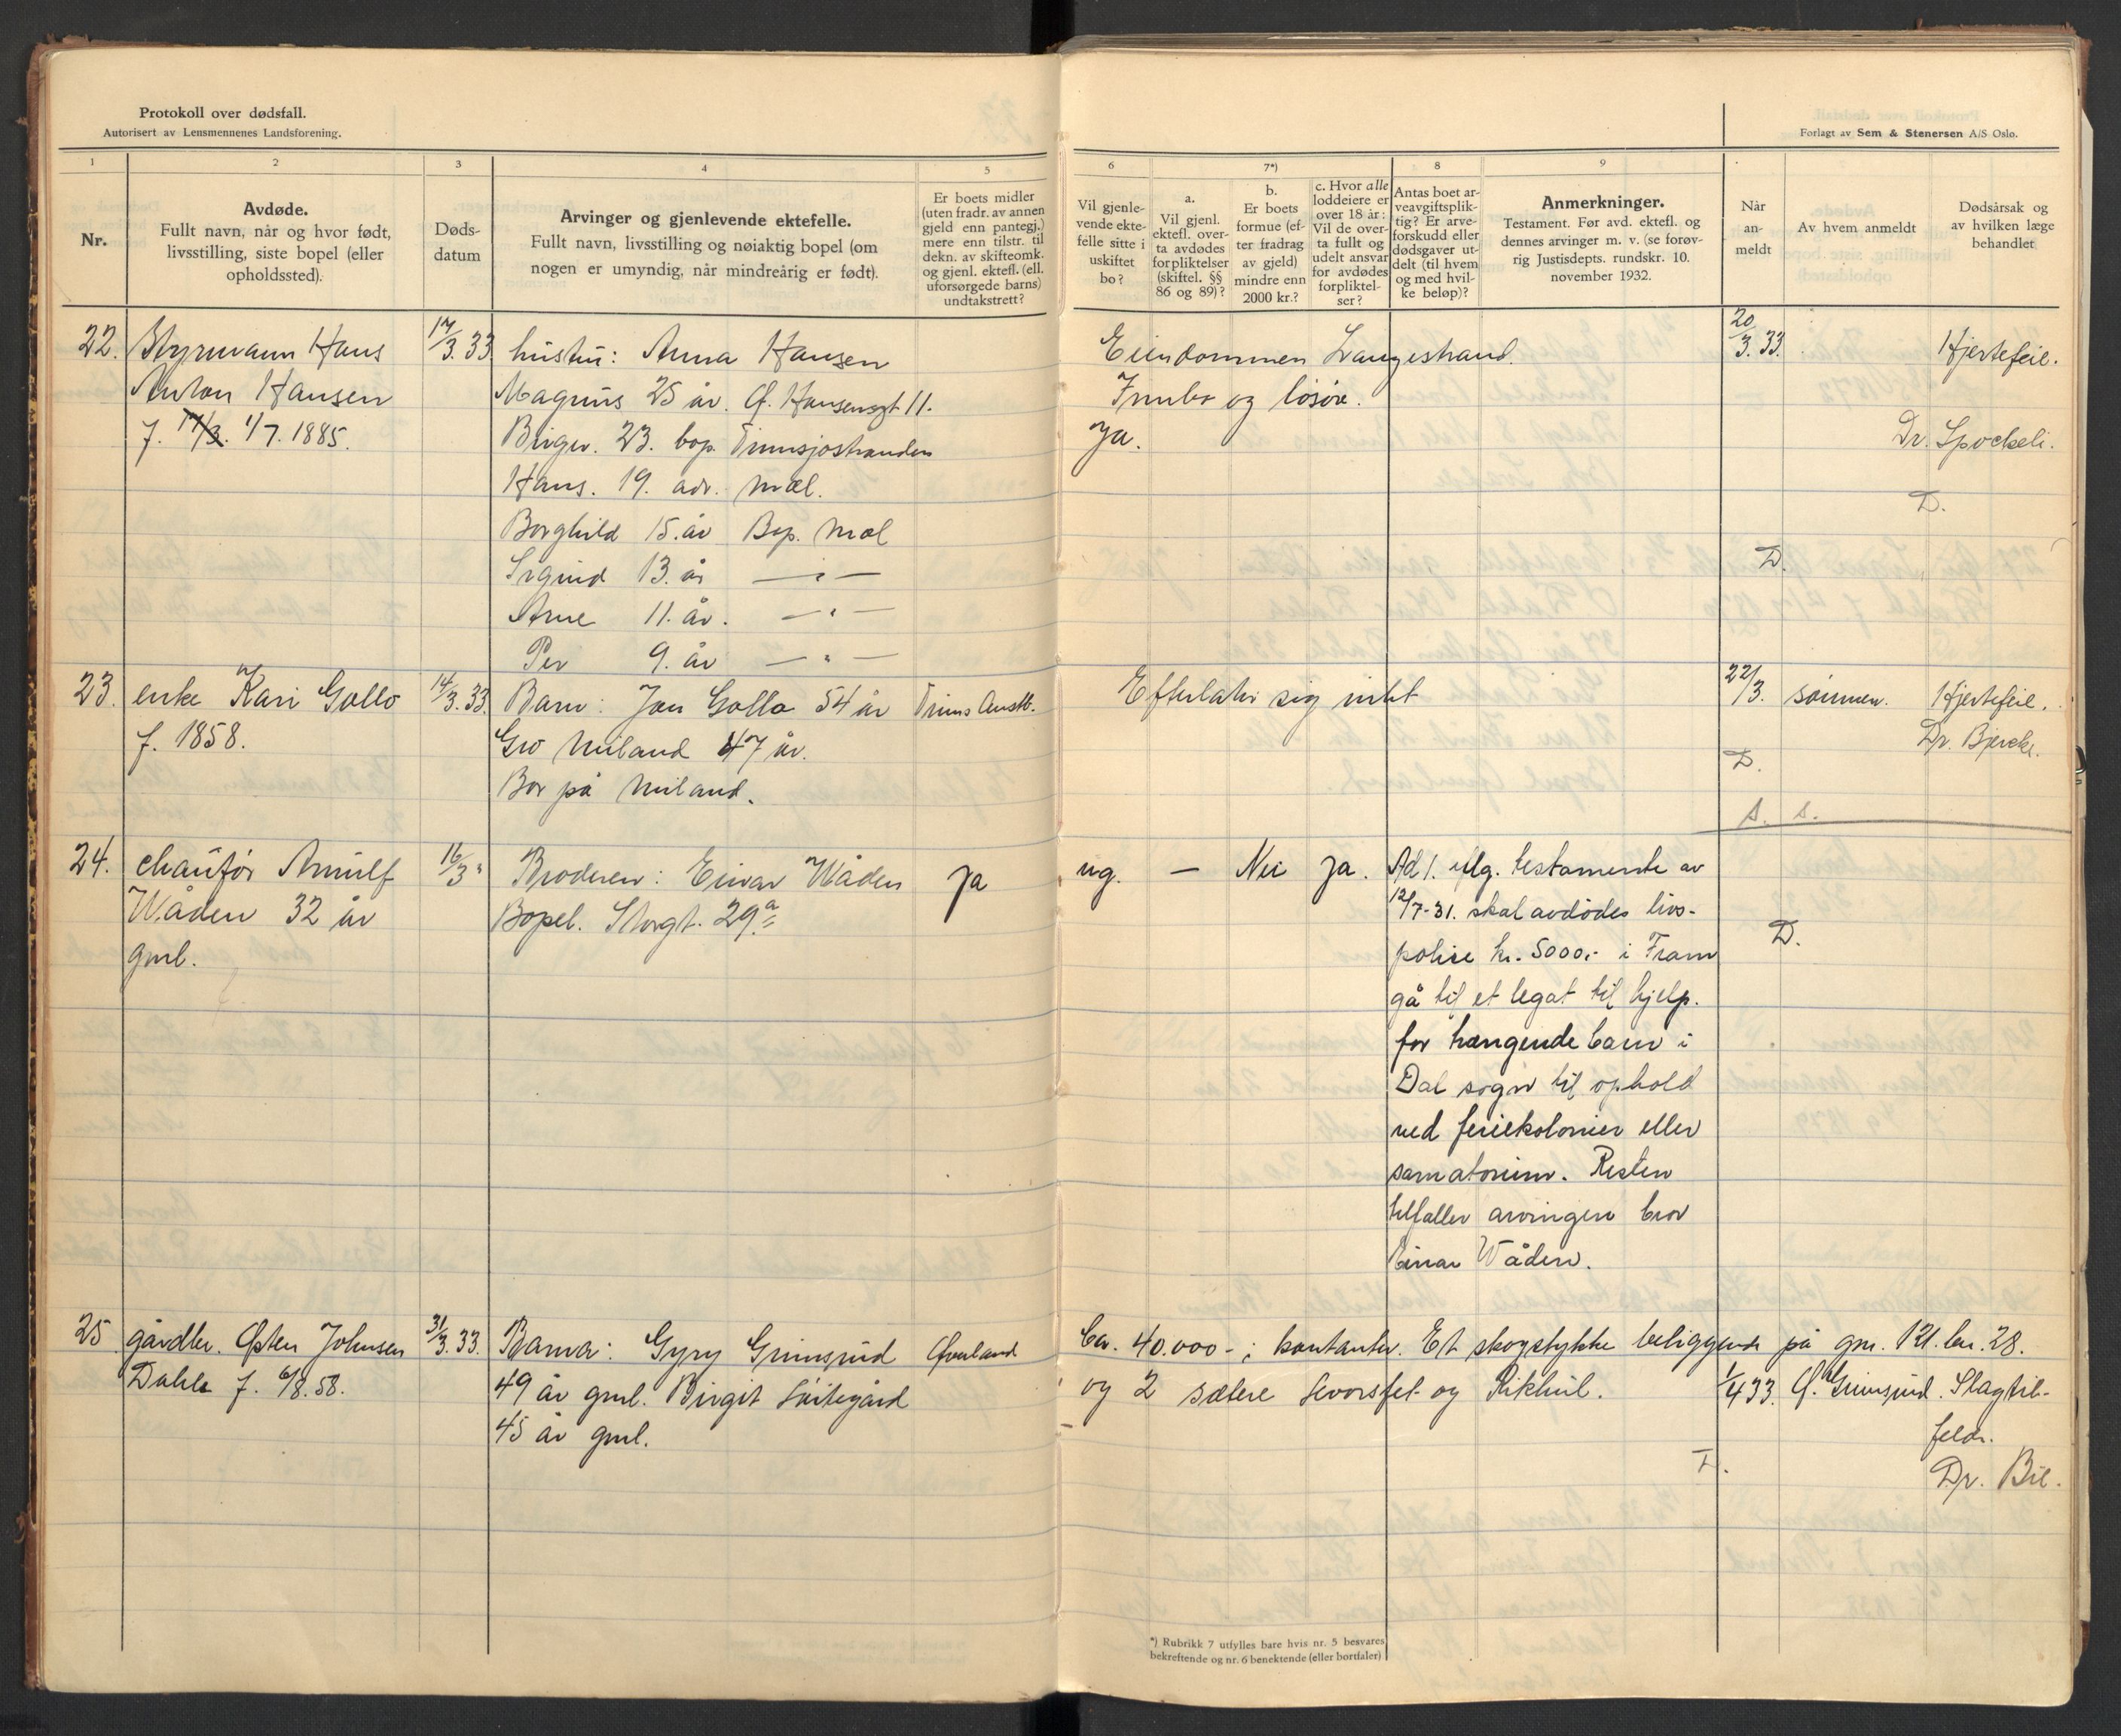 Protokoll over dødsfall.
Autorisert av Lensmennenes Landsforening.
Forlagt av Sem & Stenersen A/S Oslo.
1
Nr.
2
Avdøde.
Fullt navn, når og hvor født,
livsstilling, siste bopel (eller
opholdssted).
3
Døds-
datum
4
Arvinger og gjenlevende ektefelle.
Fullt navn, livsstilling og nøiaktig bopel (om
nogen er umyndig, når mindreårig er født).
5
Er boets midler
(uten fradr. av annen
gjeld enn pantegj.)
mere enn tilstr. til
dekn. av skifteomk.
og gjenl. ektef. (ell.
uforsørgede barns)
undtakstrett?
6
Vil gjenle-
vende ekte-
felle sitte i
uskiftet
bo?
7*)
a.
Vil gjenl.
ektefl. over-
ta avdødes
forpliktelser
(skiftel. §§
86 og 89)?
b.
Er boets
formue (ef-
ter fradrag
av gjeld)
mindre enn
2000 kr.?
c. Hvor alle
loddeiere er
over 18 år:
Vil de over-
ta fullt og
udelt ansvar
for avdødes
forpliktel-
ser?
8
Antas boet ar-
veavgiftsplik-
tig? Er arve-
forskudd eller
dødsgaver ut-
delt (til hvem
og med hvil-
ke beløp)?
9
Anmerkninger.
Testament. Før avd. ektefl. og
dennes arvinger m. v. (se forøv-
rig Justisdepts. rundskr. 10.
november 1932.
Når
an-
meldt
Av hvem anmeldt
Dødsårsak og
av hvilken læge
behandlet
22. Styrmann Hans 17/3.33. hustru: Anna Hansen Eiendommen Langestrand. 20/3.33. Hjertefeil.
Anton Hansen Magnus 25 år. O. Hansensgt 11. Innbo og løsøre.
f. 17/3. 1/7.1885. Birger. 23. bop. Tinnsjøstranden Ja. Dr.
Hans. 19. adr. Mæl.
D.
Borghild 15. år Bop. Mæl
Sigurd 13. år — " — D.
Arne 11. år. — " —
Per 9. år — " —
23. enke Kari Gollo 14/3.33. Barn: Jon Gollo 54 år Tinns Austb. Efterlater sig intet 22/3. sønnen. Hjertefeil.
f. 1858. Gro Miland 47 år. Dr. Bjercke.
Bor på Miland. D.
A. S.
24. chaufør Arnulf 16/3 " Broderen: Einar Wåden Ja ug. — Nei Ja. Ad 1. iflg. testamente av
Wåden 32 år Bopel. Storgt. 29a 12/7-31. skal avdødes livs-
gml. polise kr. 5000.- i Fram D.
gå til et legat til hjelp.
for trengende barn i
Dal sogn til ophold
ved feriekolonier eller
sanatorium. Resten
tilfaller arvingen bror
Einar Wåden.
25 gårdbr. Østen Johnsen 31/3.33. Barna: Gyry Grimsrud Øverland Ca. 40.000- i kontanter. Et skogstykke beliggende på gnr. 121. bnr. 28.
Dahle f. 6/8.58. 49 år gml. Birgit og 2 sætere og 1/4 33. O. Grimsrud. Slagtil-
45 år gml. felde.
D. Dr.
*) Rubrikk 7 utfylles bare hvis nr. 5 besvares
bekreftende og nr. 6 benektende (eller bortfaler)